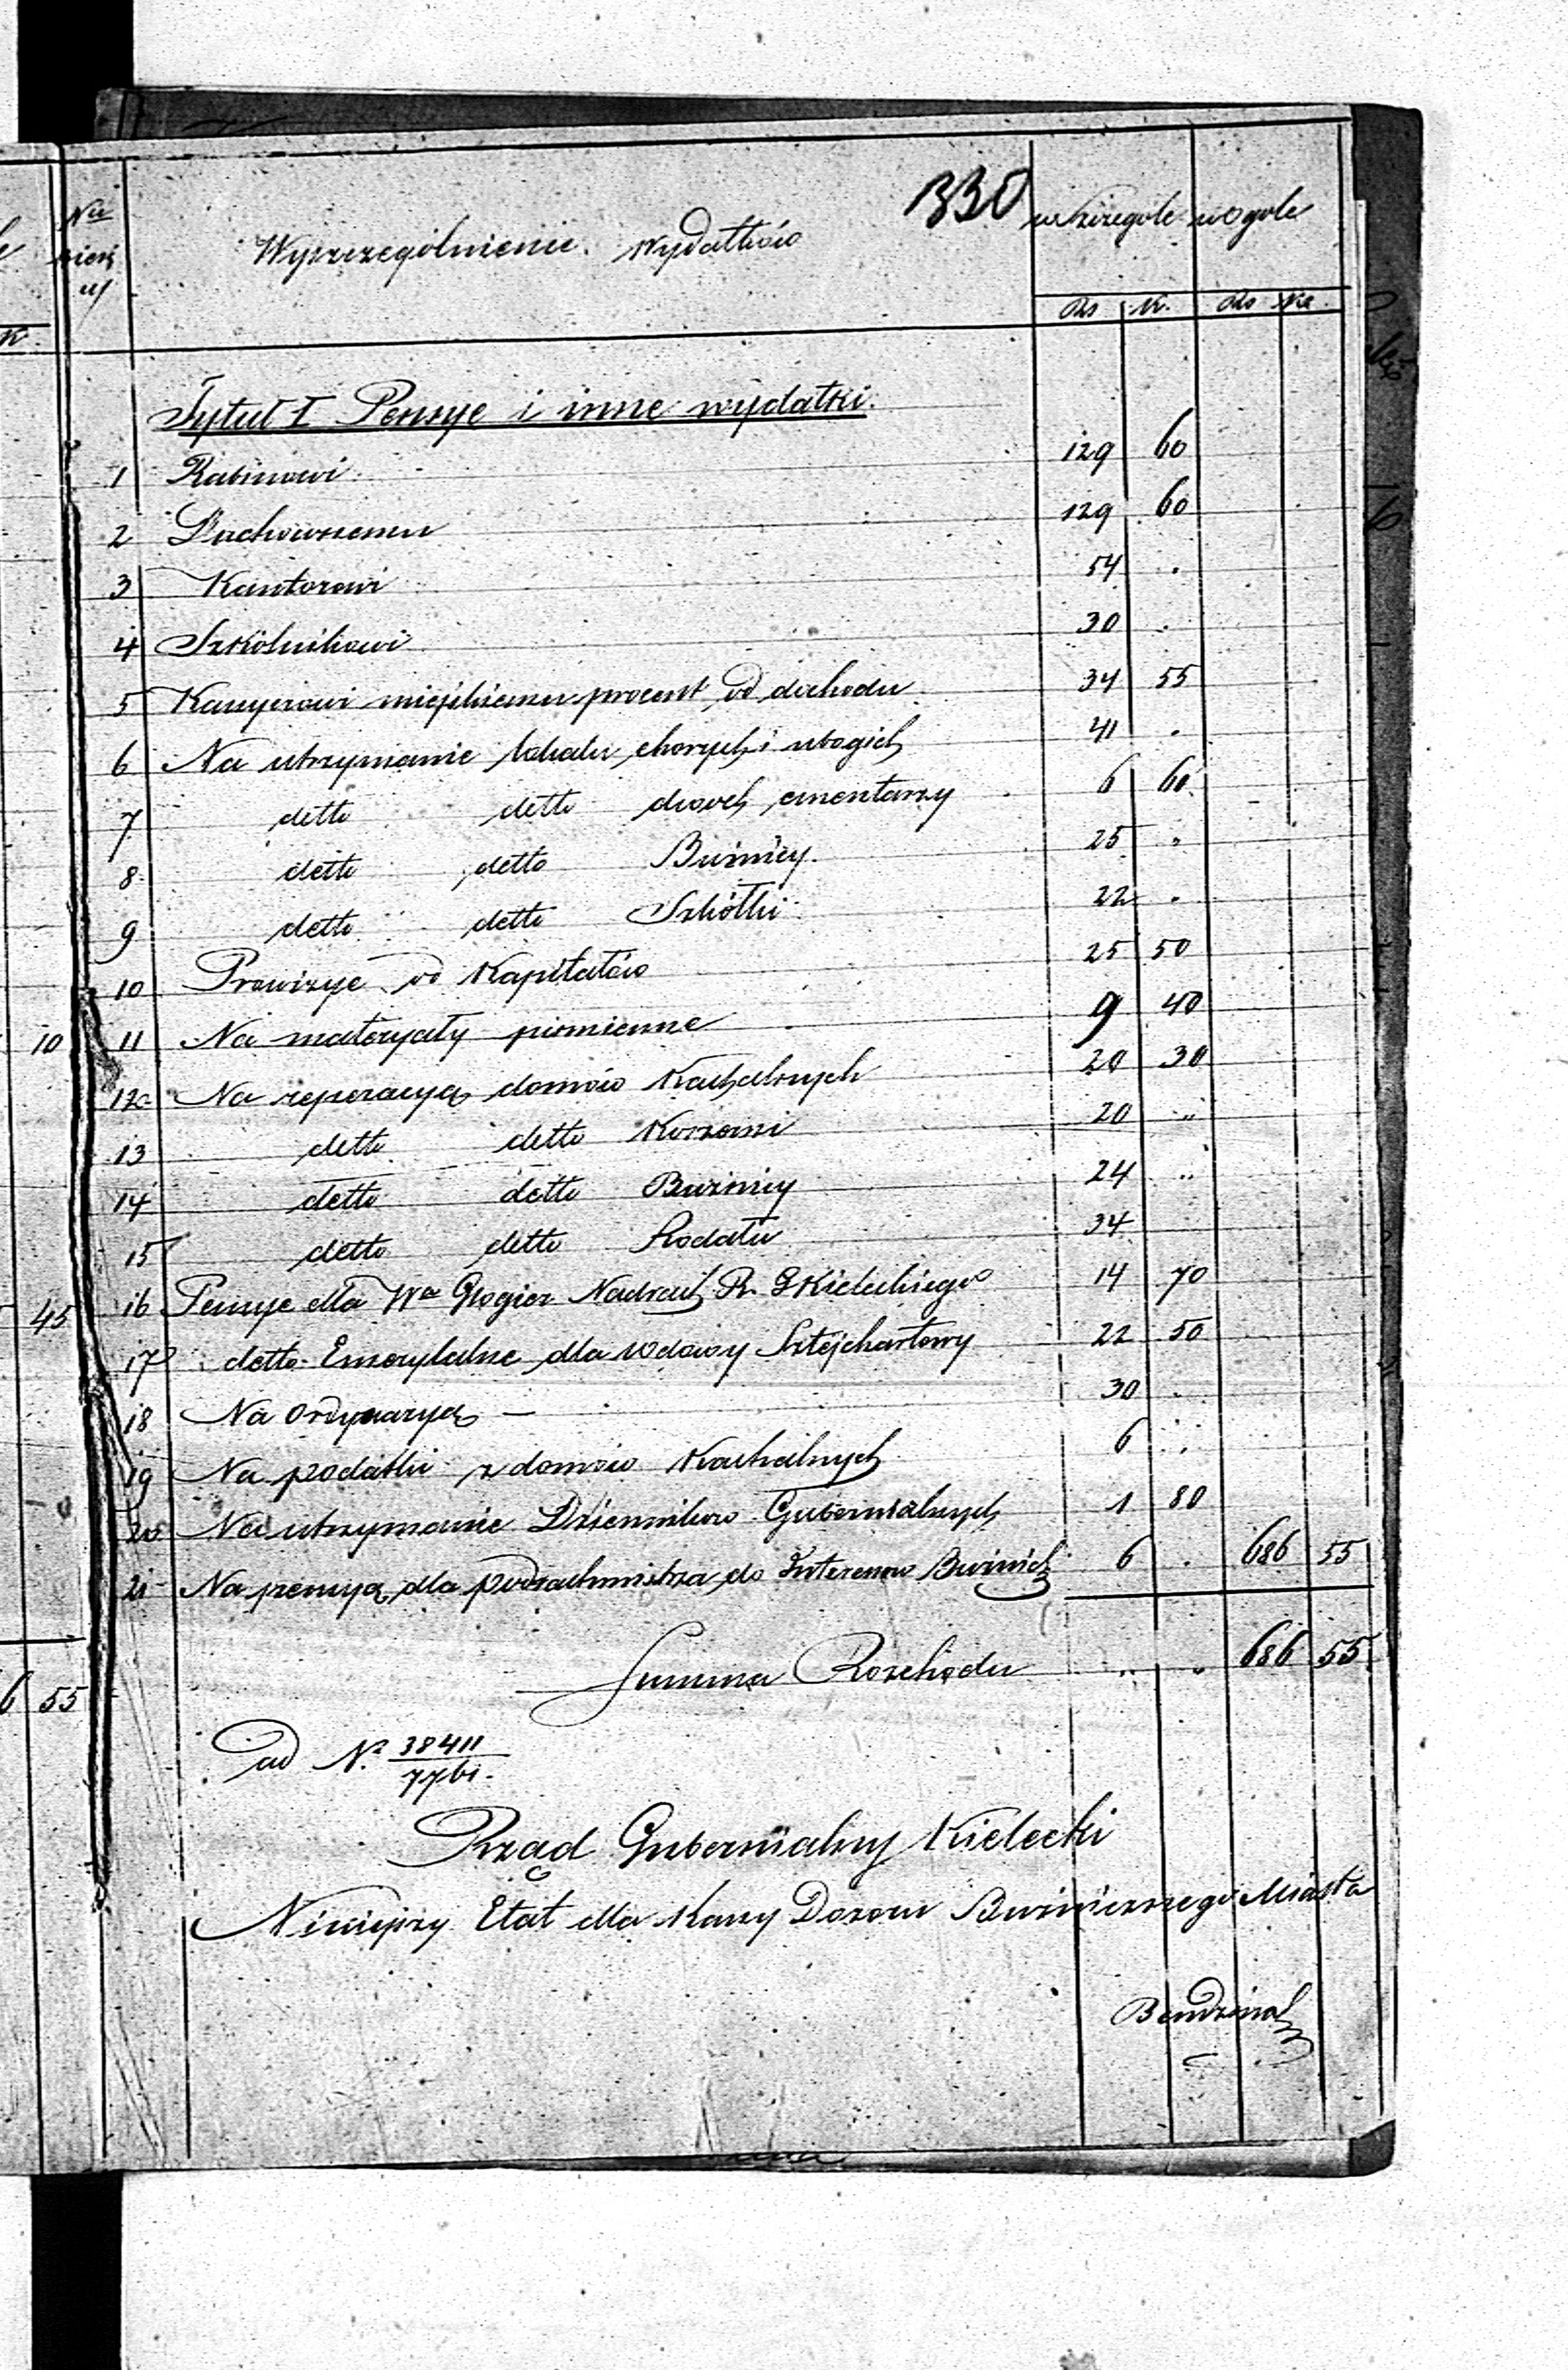 330
Na
Wyszczególnienie Wydatków w szczególe w ogóle
Rs K. Rs K.
K.
Tytuł I Pensye i inne wydatki.
1 Rabinowi 129 60
2 Duchownemu 129 60
3 Kantorowi 54 .
4 Szkólnikowi 30 .
5 Kassyerowi miejskiemu procent od dochodu 34 55
6 Na utrzymanie lokalu chorych i ubogich 41 .
7 detto detto dwoch cmentarzy 6 60
8 detto detto Bużnicy. 25 "
9 detto detto Szkółki 22 .
10 Prowizye od Kapitałów 25 50
10 11 Na materyały piśmienne 9 40
12 Na reperacyą domów Kachalnych 20 30
13 detto detto Koszar 20 "
14 detto detto Bużnicy 24 "
15 detto detto 34
45 16 Pensye dla Wa Glogier Nadrach. R. G Kieleckiego 14 70
17 detto Emerytalne dla wdowy Sztejchartowy 22 50
18 Na Ordynaryą — 30 .
19 Na podatki z domów Kachalnych 6 "
20 Na utrzymanie Dzienników Gubernialnych 1 80
21 Na pensyą dla podrachmistrza do Interesow Bużnich 6 . 686 55
Summa Rozchodu " " 686 55
6 55
ad N. 38411
7761.
Rząd Gubernialny Kielecki
Niniejszy Etat dla Kassy Dozoru Bużnicznego Miasta
Bendzina